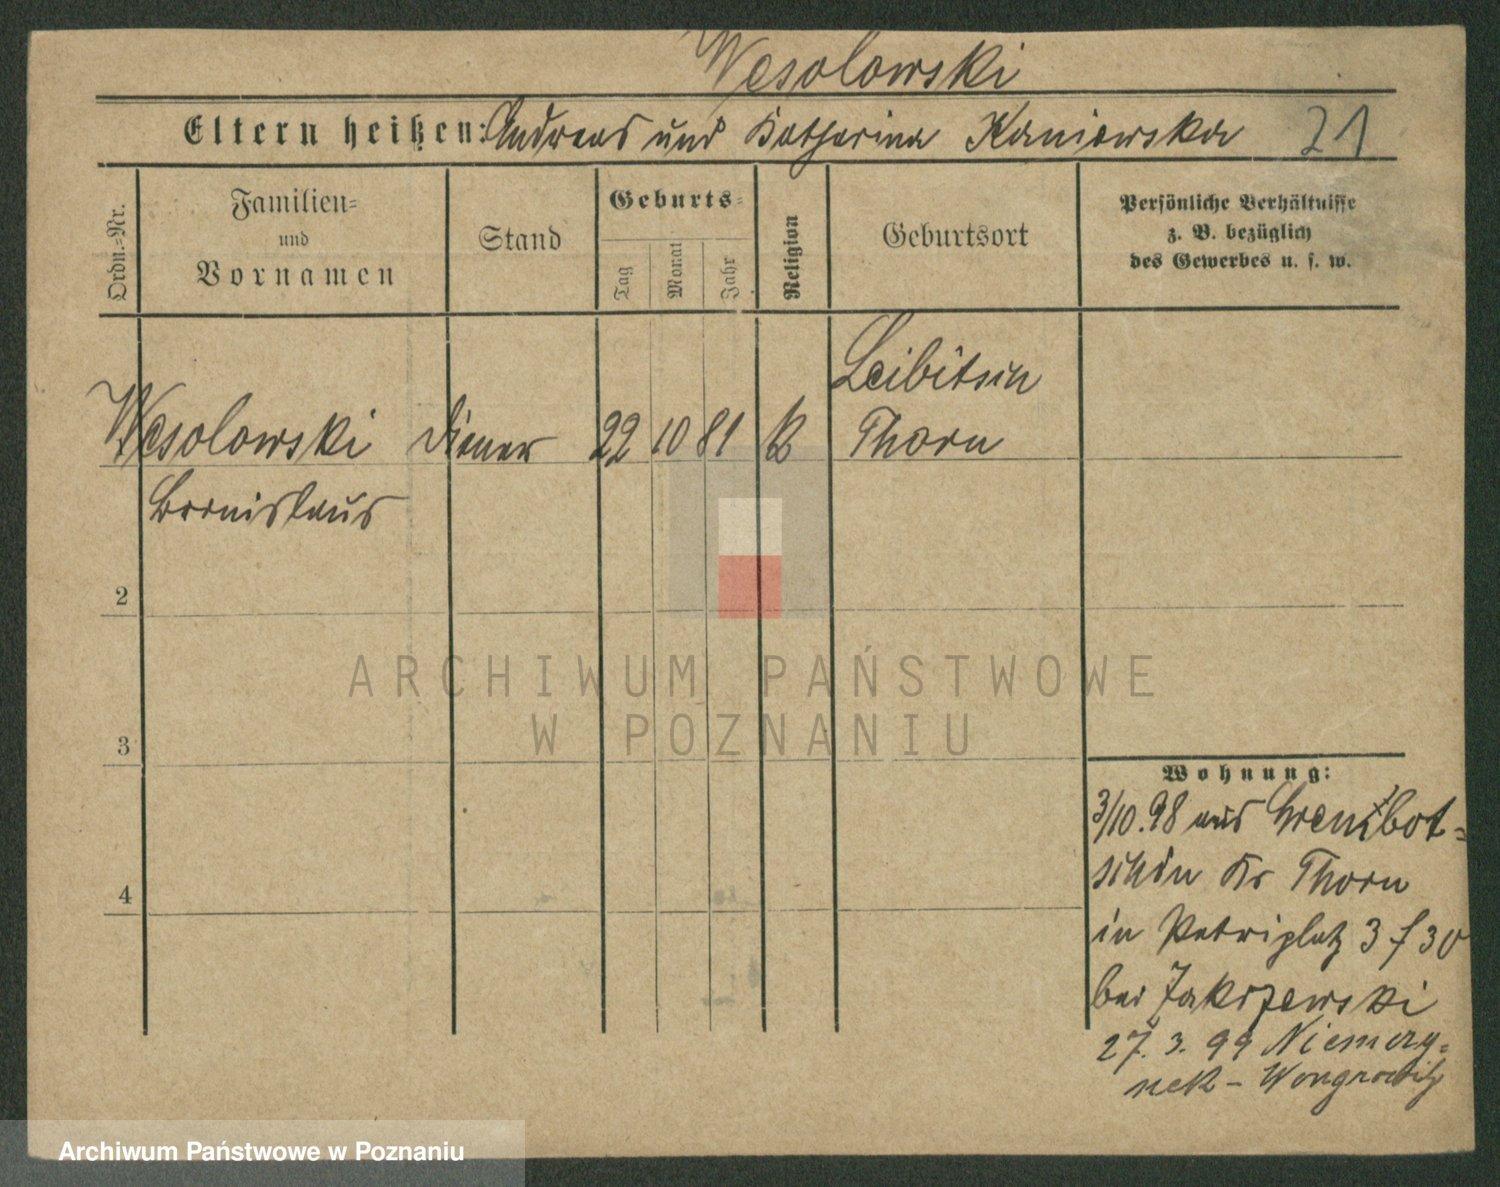 Wesolowski
Eltern heißen: Andreas und Katharina Kaniewska 21
Ordn.=Nr.
Familien=
und
Vornamen
Stand
Geburts=
Tag
Monat
Jahr
Religion
Geburtsort
Persönliche Verhältnisse
z. B. bezüglich
des Gewerbes u. s. w.
Leibitsch
Wesolowski Diener 22 10 81 k Thorn
Bronislaus
2
3
4
Wohnung:
3/10.98 aus Grembot=
schin Kr Thorn
in Petriplatz 3 f 30
bei Zakrzewski
27. 3. 99 Niemczy=
nek - Wongrowitz
ARCHIWUM PAŃSTWOWE
W POZNANIU
Archiwum Państwowe w Poznaniu